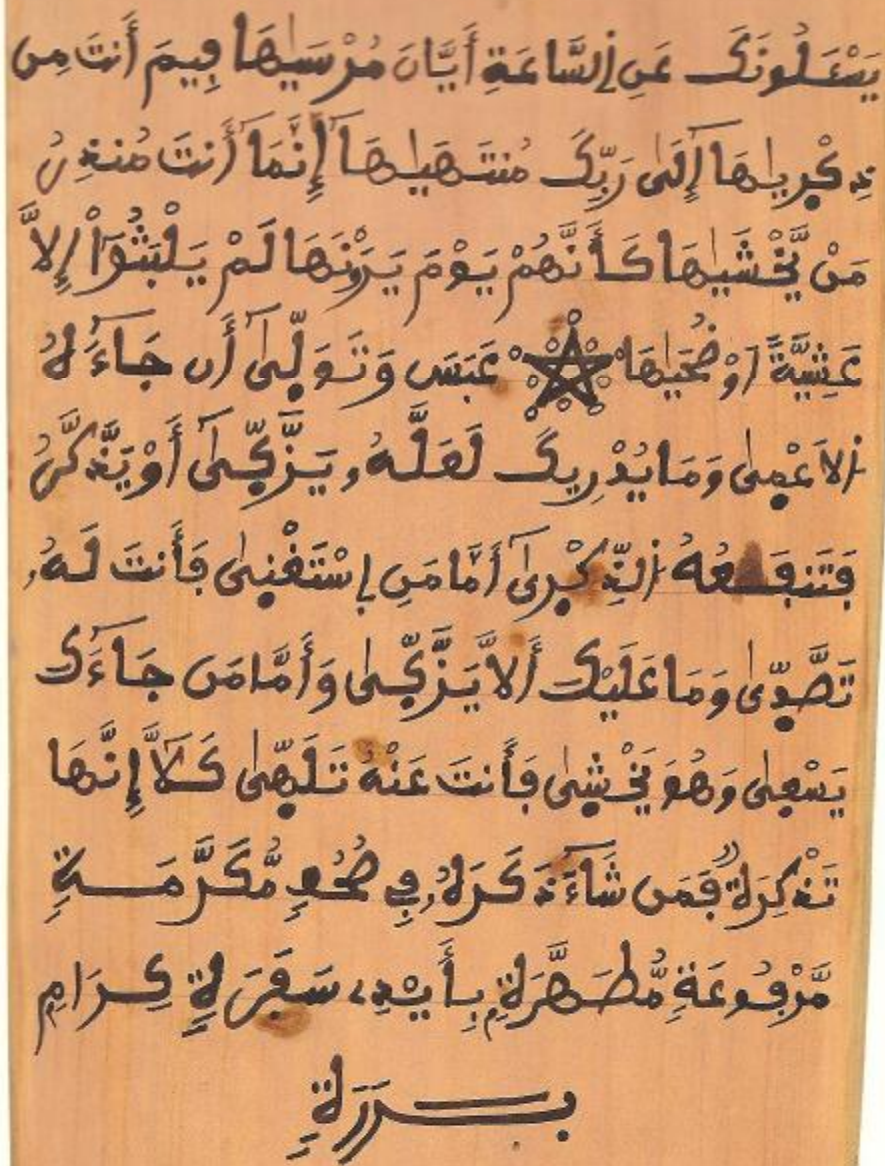 يَسْـَٔلُونَكَ عَنِ اِ۬لسَّاعَةِ أَيَّانَ مُرْسَيٰهَا فِيمَ أَنتَ مِن
ذِكْر۪يٰهَآ إِلَىٰ رَبِّكَ مُنتَهَيٰهَآ إِنَّمَآ أَنتَ مُنذِرُ
مَنْ يَّخْشَيٰهَا كَأَنَّهُمْ يَوْمَ يَرَوْنَهَا لَمْ يَلْبَثُوٓاْ إِلَّا
عَشِيَّةً اَوْ ضُحَيٰهَا عَبَسَ وَتَوَلّ۪ىٰٓ أَن جَآءَهُ
اُ۬لَاعْم۪ىٰ وَمَا يُدْرِيكَ لَعَلَّهُۥ يَزَّكّ۪ىٰٓ أَوْ يَذَّكَّرُ
فَتَنفَعُهُ اُ۬لذِّكْر۪ىٰٓ أَمَّا مَنِ اِ۪سْتَغْن۪ىٰ فَأَنتَ لَهُۥ
تَصَّدّ۪ىٰ وَمَا عَلَيْكَ أَلَّا يَزَّكّ۪ىٰ وَأَمَّا مَن جَآءَكَ
يَسْع۪ىٰ وَهُوَ يَخْش۪ىٰ فَأَنتَ عَنْهُ تَلَهّ۪ىٰ كَلَّآ إِنَّهَا
تَذْكِرَةٌ فَمَن شَآءَ ذَكَرَهُۥ فِي صُحُفٍ مُّكَرَّمَةٍ
مَّرْفُوعَةٍ مُّطَهَّرَةٍ بِأَيْدِے سَفَرَةٍ كِرَامٍ
بَرَرَةٍ